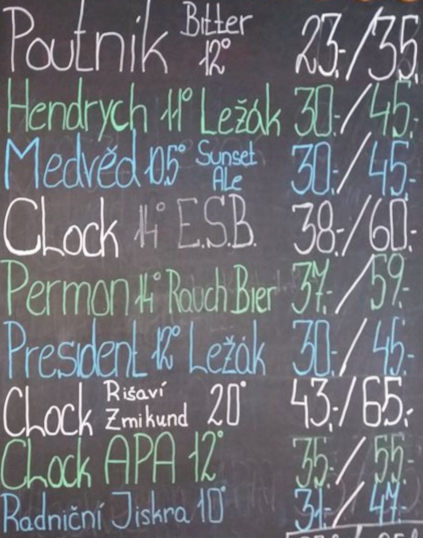 Poutnik Bitter 12° 23,-/35,
Hendrych 11° Ležák 30,-/45,-
Medvěd 10,5° Sunset Ale 30,-/45,-
CLock 14° E.S.B. 38,-/60,-
Permon 14° Rauch Bier 37,-/59,-
President 12° Ležák 30,-/45,-
CLock Rišaví Zmikund 20° 43,-/65,-
CLock APA 12° 35,-/55,-
Radniční Jiskra 10° 31,-/47,-